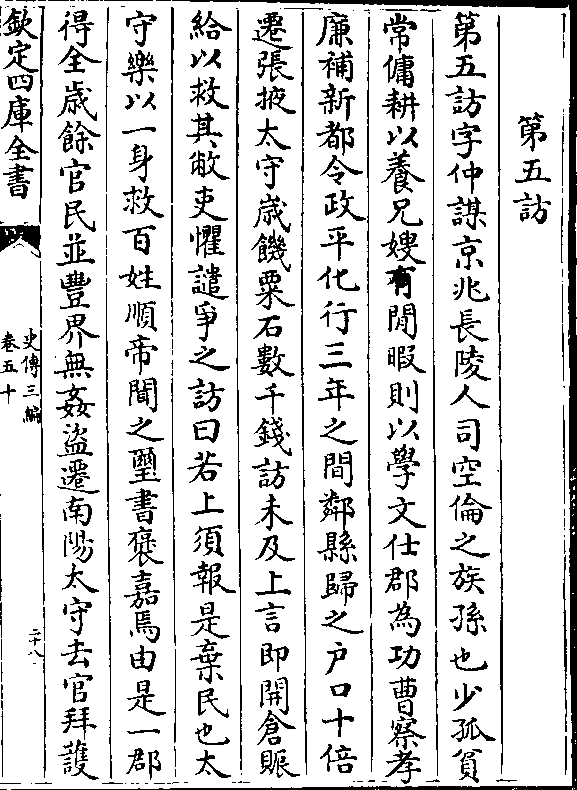 第五訪
第五訪字仲謀京兆長陵人司空倫之族孫也少孤貧
常傭耕以養兄嫂有閒暇則以學文仕郡為功曹察孝
廉補新都令政平化行三年之間鄰縣歸之户口十倍
遷張掖太守歲饑粟石數千錢訪未及上言即開倉賑
給以救其敝吏懼譴爭之訪曰若上須報是棄民也太
守樂以一身救百姓順帝聞之璽書褒嘉焉由是一郡
得全歲餘官民並豐界無姦盜遷南陽太守去官拜護
欽定四庫全書
史傳三編
卷五十
二十八